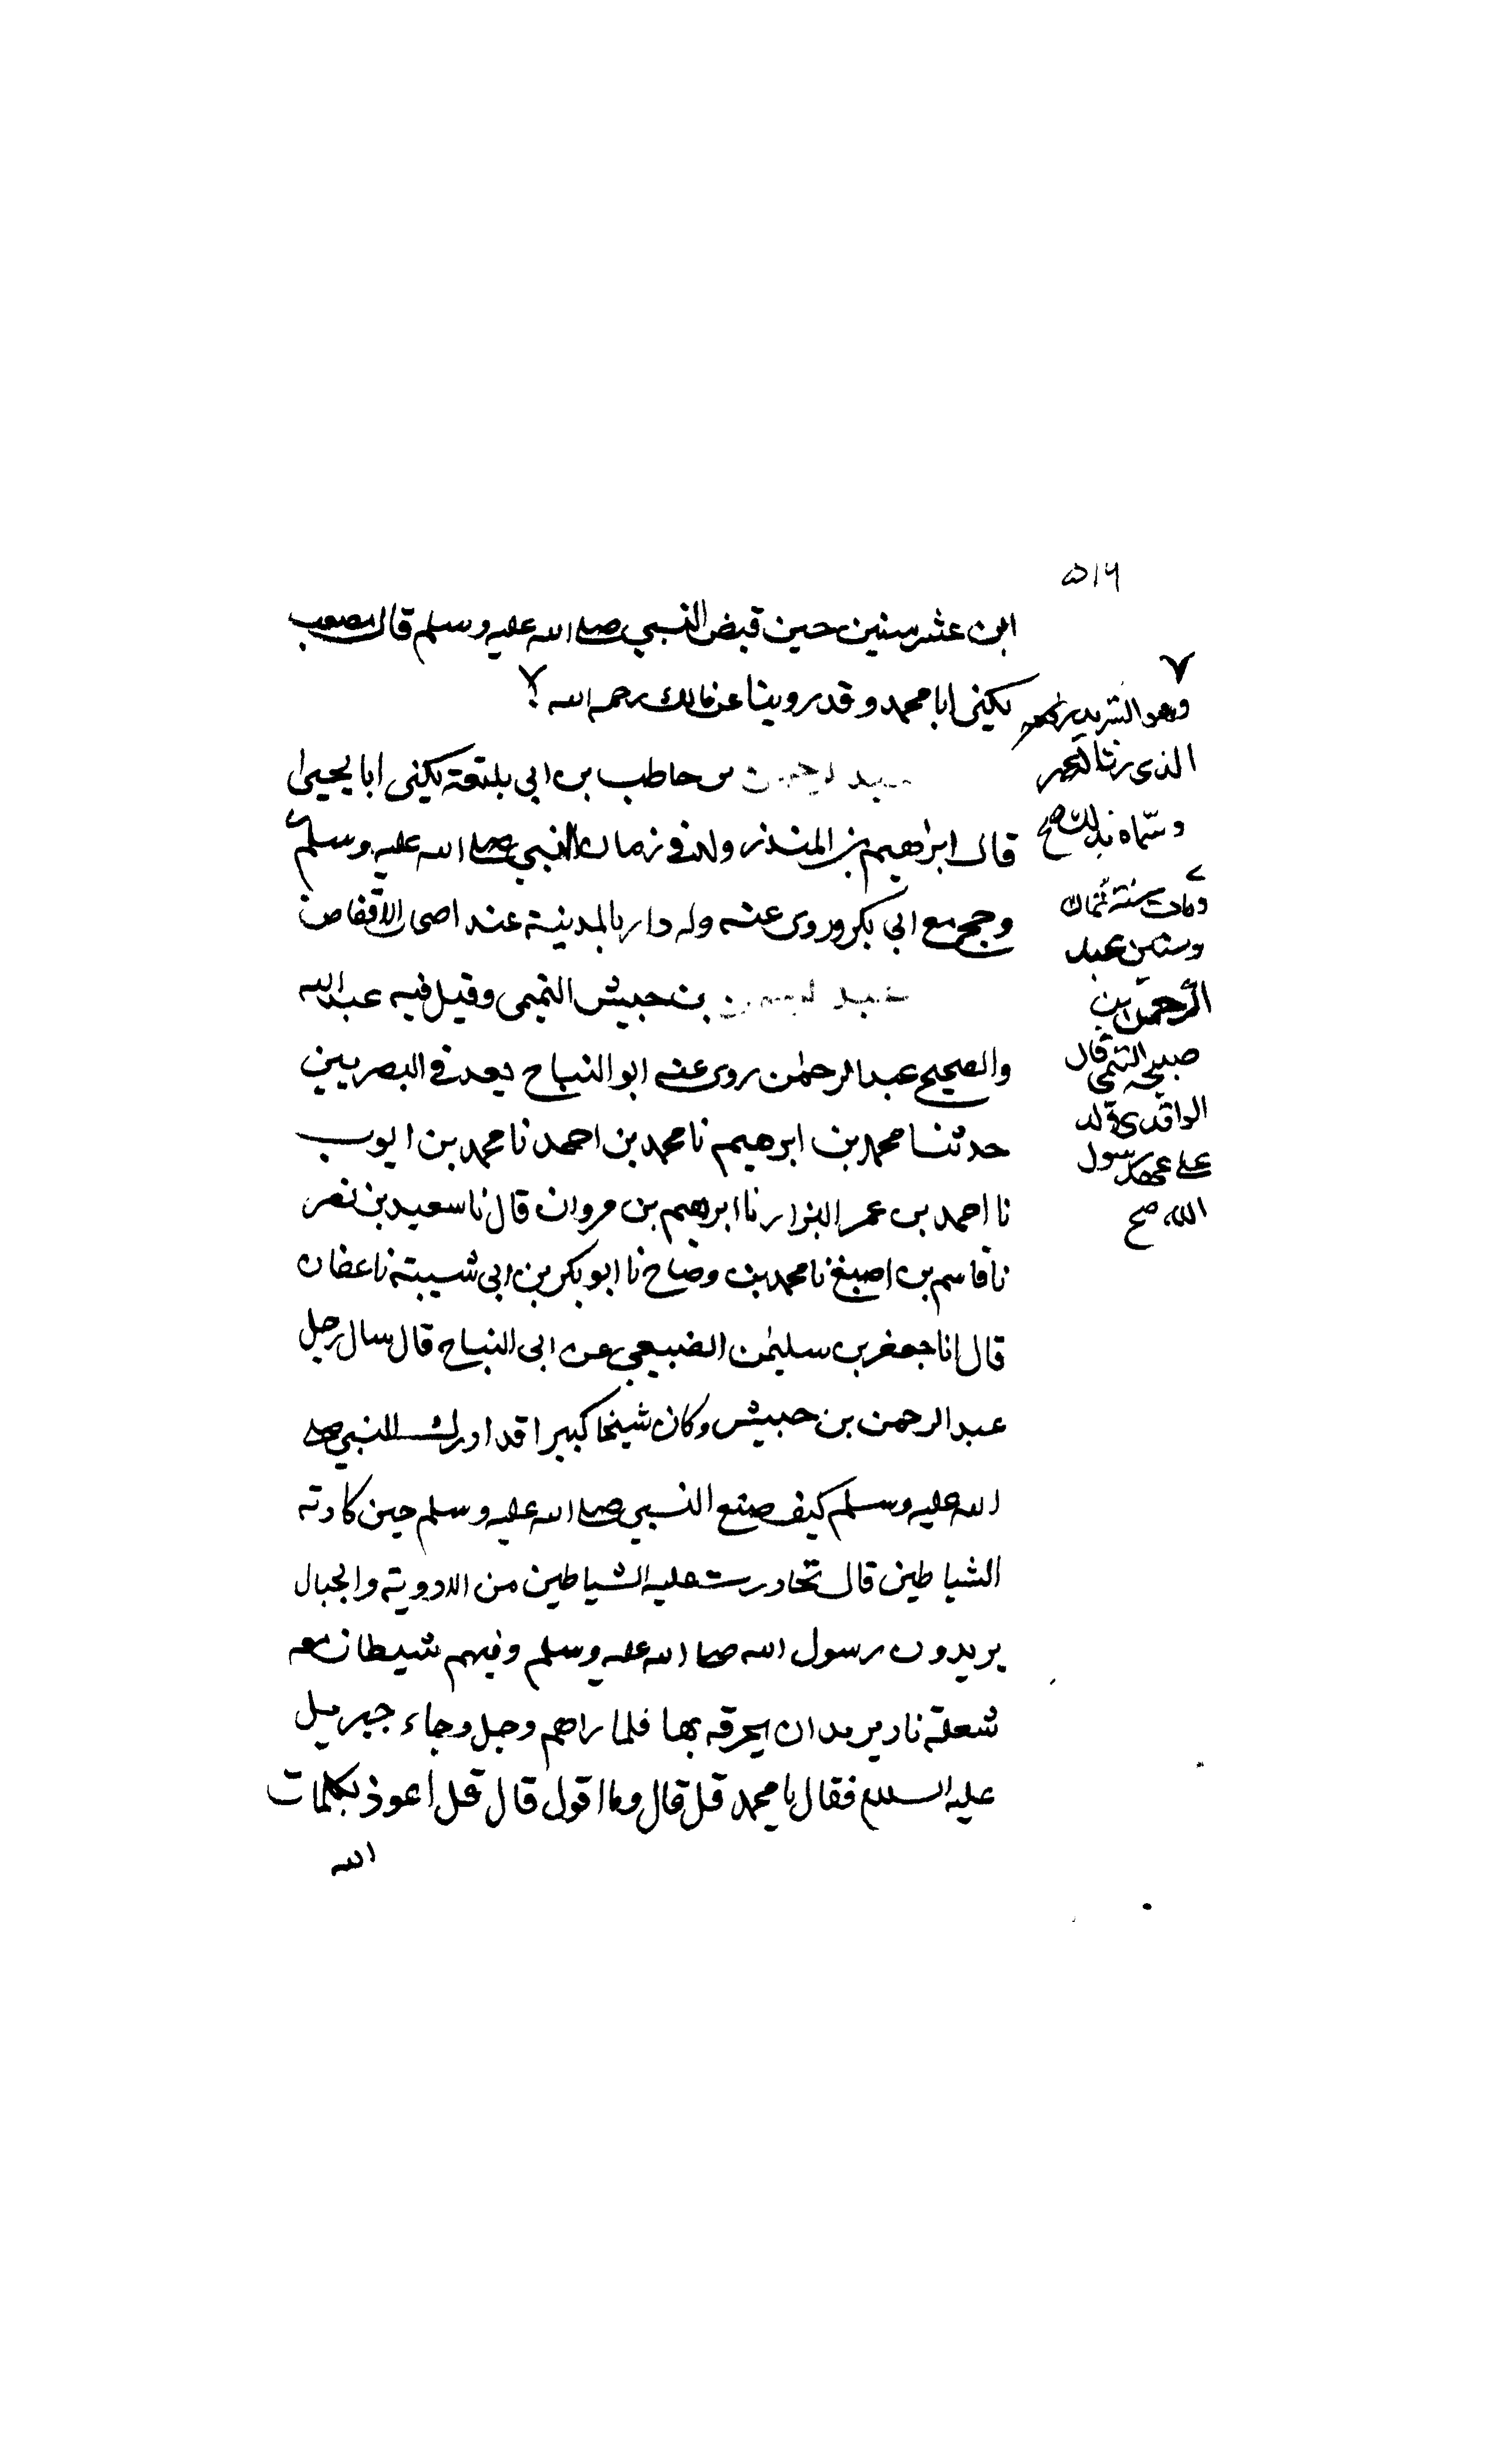 ٥١٦
ابن عشر سنين حين قبض النبي صلى الله عليه وسلم قال مصعب
يكنى ابا محمد وقد روينا عن مالك رحمه الله
عبد الرحمن بن حاطب بن ابي بلتعة يكنى ابا يحيى
قال ابراهيم بن المنذر ولد في زمان النبي صلى الله عليه وسلم
وحج مع ابي بكر وروى عنه وله دار بالمدينة عند اصحاب الاقفاص
عبد الرحمن بن حبيش التميمي وقيل فيه عبد الله
والصحيح عبد الرحمن روى عنه ابو التياح يعد في البصريين
حدثنا محمد بن ابرهيم نا محمد بن احمد نا محمد بن ايوب
نا احمد بن عمر البزار نا ابرهيم بن مروان قال نا سعيد بن نصر
نا قاسم بن اصبغ نا محمد بن وضاح نا ابو بكر بن ابي شيبة نا عفان
قال انا جعفر بن سليمن الضبيعي عن ابي التياح قال سال رجل
عبد الرحمن بن حبيش وكان شيخا كبيرا قد ادرك النبي صلى
الله عليه وسلم كيف صنع النبي صلى الله عليه وسلم حين كادته
الشياطين قال تحادرت عليه الشياطين من الاودية والجبال
يريدون رسول الله صلى الله عليه وسلم وفيهم شيطان معه
شعلة نار يريد ان يحرقه بها فلما راهم وجل وجاء جبرئيل
عليه السلام فقال يا محمد قل قال وما اقول قال قل اعوذ بكلمات
الله
وهو الشريد
الذي
وسماه بذلك صح
ومات سنة ثمان
وستين عبد
الرحمن بن
صبيحة التيمي قال
الواقدي ولد
على عهد رسول
الله صح